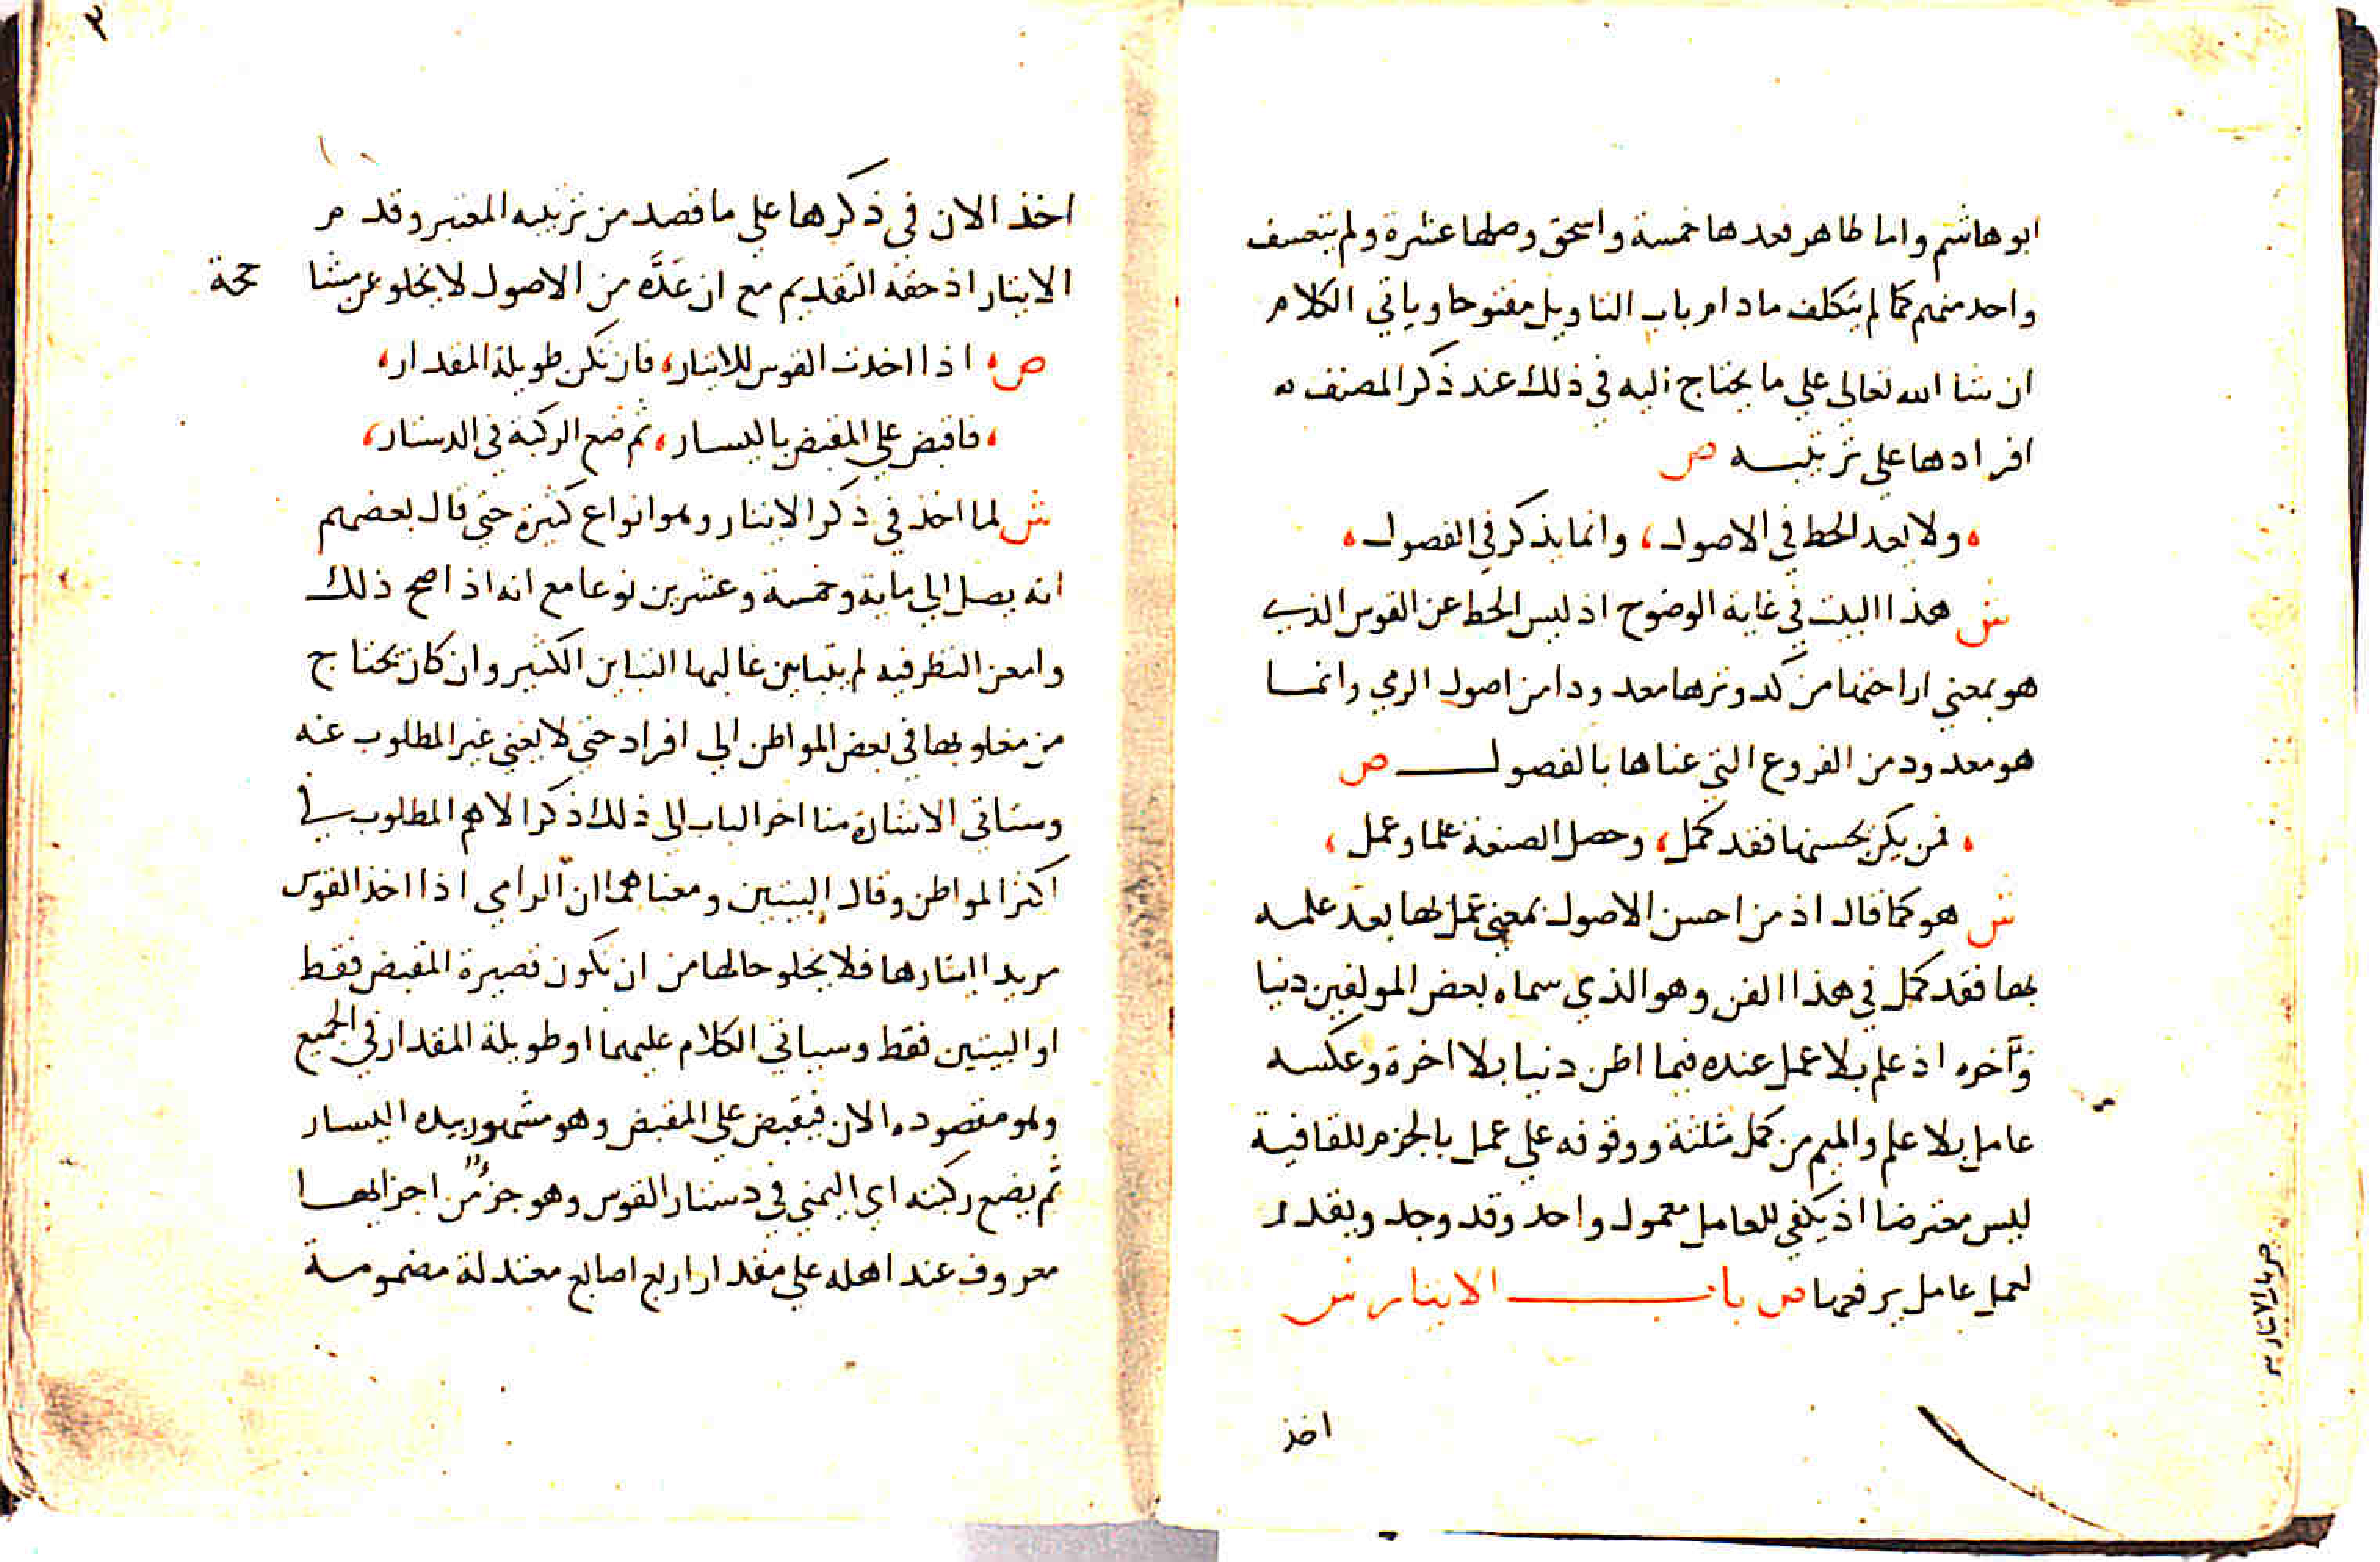 ابو هاشم واما طاهر فعدها خمسة واسحق وصلها عشرة ولم يتعسف
واحد منهم كما لم يتكلف مادام باب التاويل مفتوحا وياتي الكلام
ان شا الله تعالى علي ما يحتاج اليه في ذلك عند ذكر المصنف له
افرادها علي ترتيبه ص
ولا يعد الحط في الاصول، وانما يذكر في الفصول
ش هذا البيت في غاية الوضوح اذ ليس الحط عن القوس الذي
هو بمعني اراحتها من كد وترها معدودا من اصول الرمي وانما
هو معدود من الفروع التي عناها بالفصول ص
فمن يكن يحسنها فقد كمل، وحصل الصنعة علما وعمل،
ش هو كما قال اذ من احسن الاصول بمعني عمل بها بعد علمه
بها فقد كمل في هذا الفن وهو الذي سماه بعض المولفين دنيا
وآخره اذ علم بلا عمل عنده فيما اظن دنيا بلا اخرة وعكسه
عامل بلا علم والميم من كمل مثلثة ووقوفه علي عمل بالجزم للقافية
ليس معترضا اذ يكفي للعامل معمول واحد وقد وجد ويقدر
لعمل عامل يرفعها ص باب الايتار ش
اخذ
٣
اخذ الان في ذكرها علي ما قصد من ترتيبه المعتبر وقدم
الايتار اذ حقه التقديم مع ان عَدَّه من الاصول لا يخلو عن مشا ححة
ص، اذا اخذت القوس للايتار، فان تكن طويلة المقدار،
، فاقبض علي المقبض باليسار، ثم ضع الركبة في الدستار،
ش لما اخذ في ذكر الايتار وهو انواع كثيرة حتي قال بعضهم
انه يصل الي ماية وخمسة وعشرين نوعا مع انه اذا صح ذلك
وامعن النظر فيه لم يتباين غالبها التباين الكثير وان كان يحتاج
في بعض المواطن الي افراد حتي لا يغني غير المطلوب عنه
وستاتي الاشارة منا اخر الباب الي ذلك ذكر الاهم المطلوب في
اكثر المواطن وقال البيتين ومعناهما ان الرامي اذا اخذ القوس
مريدا ايتارها فلا يخلو حالها من ان تكون قصيرة المقبض فقط
او البيتين فقط وسياتي الكلام عليهما او طويلة المقدار في الجميع
وهو مقصوده الان فيقبض علي المقبض وهو مشهور بيده اليسار
ثم يضع ركبته اي اليمني في دستار القوس وهو جزؤٌ من اجزايها
معروف عند اهله علي مقدار اربع اصابع معتدلة مضمومة